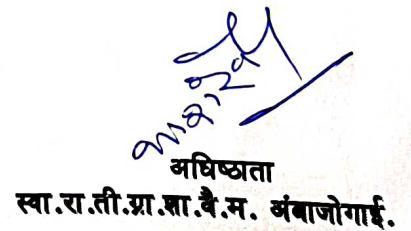 अधिष्ठाता
स्वा.रा.ती.ग्रा.शा.वै.म. अंबाजोगाई.